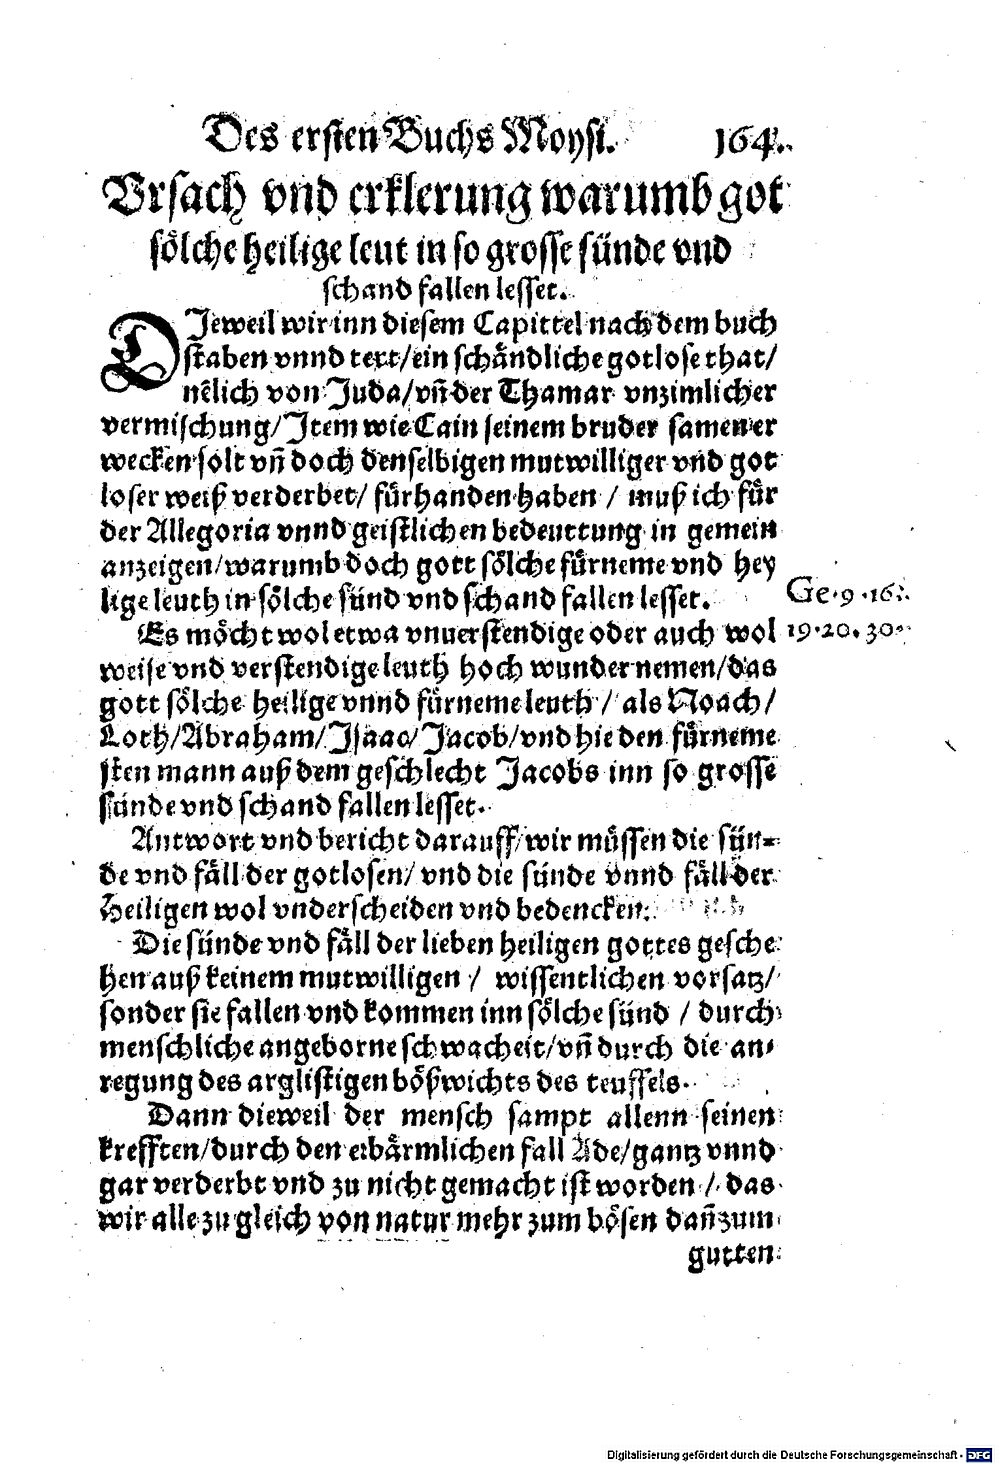 Des ersten Buchs Moysi. 164.
Vrsach vnd erklerung warumb got
sölche heilige leut in so grosse sünde vnd
schand fallen lesset.
DJeweil wir inn diesem Capittel nach dem buch
staben vnnd text/ein schändliche gotlose that/
nẽlich von Juda/vñ der Thamar vnzimlicher
vermischung/Jtem wie Cain seinem bruder samen er
wecken solt vñ doch denselbigen mutwilliger vnd got
loser weiß verderbet/ fürhanden haben / muß ich für
der Allegoria vnnd geistlichen bedeuttung in gemein
anzeigen/warumb doch gott sölche fürneme vnd hey
lige leuth in sölche sünd vnd schand fallen lesset. Ge.9.16.
Es möcht wol etwa vnuerstendige oder auch wol 19.20.30.
weise vnd verstendige leuth hoch wunder nemen/das
gott sölche heilige vnnd fürneme leuth / als Noach/
Loth/Abraham/Jsaac/Jacob/vnd hie den fürneme
sten mann auß dem geschlecht Jacobs inn so grosse
sünde vnd schand fallen lesset.
Antwort vnd bericht darauff/wir müssen die sün-
de vnd fäll der gotlosen/ vnd die sünde vnnd fäll der
Heiligen wol vnderscheiden vnd bedencken.
Die sünde vnd fäll der lieben heiligen gottes gesche
hen auß keinem mutwilligen / wissentlichen vorsatz/
sonder sie fallen vnd kommen inn sölche sünd / durch
menschliche angeborne schwacheit/vñ durch die an-
regung des arglistigen bößwichts des teuffels.
Dann dieweil der mensch sampt allenn seinen
krefften/durch den erbärmlichen fall Ade/gantz vnnd
gar verderbt vnd zu nicht gemacht ist worden / das
wir alle zu gleich von natur mehr zum bösen dañ zum
gutten
Digitalisierung gefördert durch die Deutsche Forschungsgemeinschaft - DFG